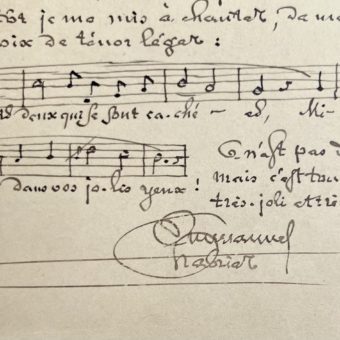 je me mis à chanter, da ma
voix de ténor léger :
deux qui se sont ca-ché - es, Mi-
dans vos jo-lis yeux !
C'n'est pas
mais c'est tou
très-joli et trè
Emmanuel
Chabrier